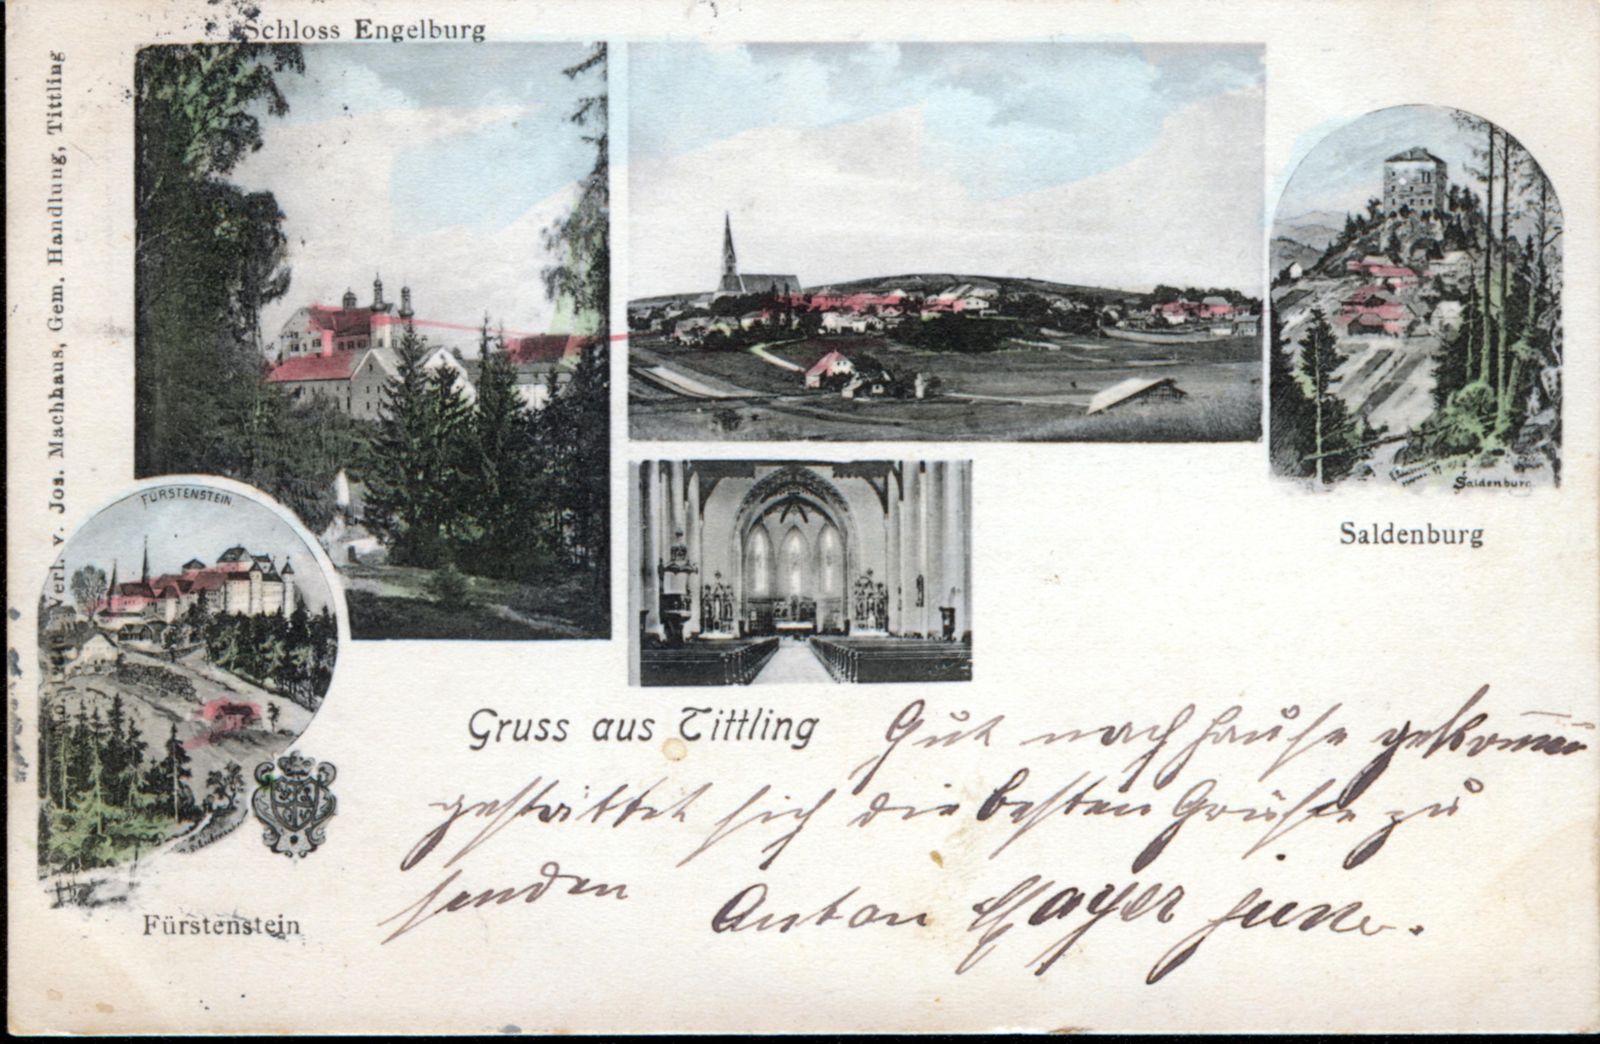 Schloss Engelburg
Verl. v. Jos. Machhaus, Gem. Handlung, Tittling
FÜRSTENSTEIN
Saldenburg
Saldenburg
Gruss aus Tittling
Gut nach Hause gekommen
gestattet sich die besten Grüße zu
senden Anton Mayer jun.
Fürstenstein